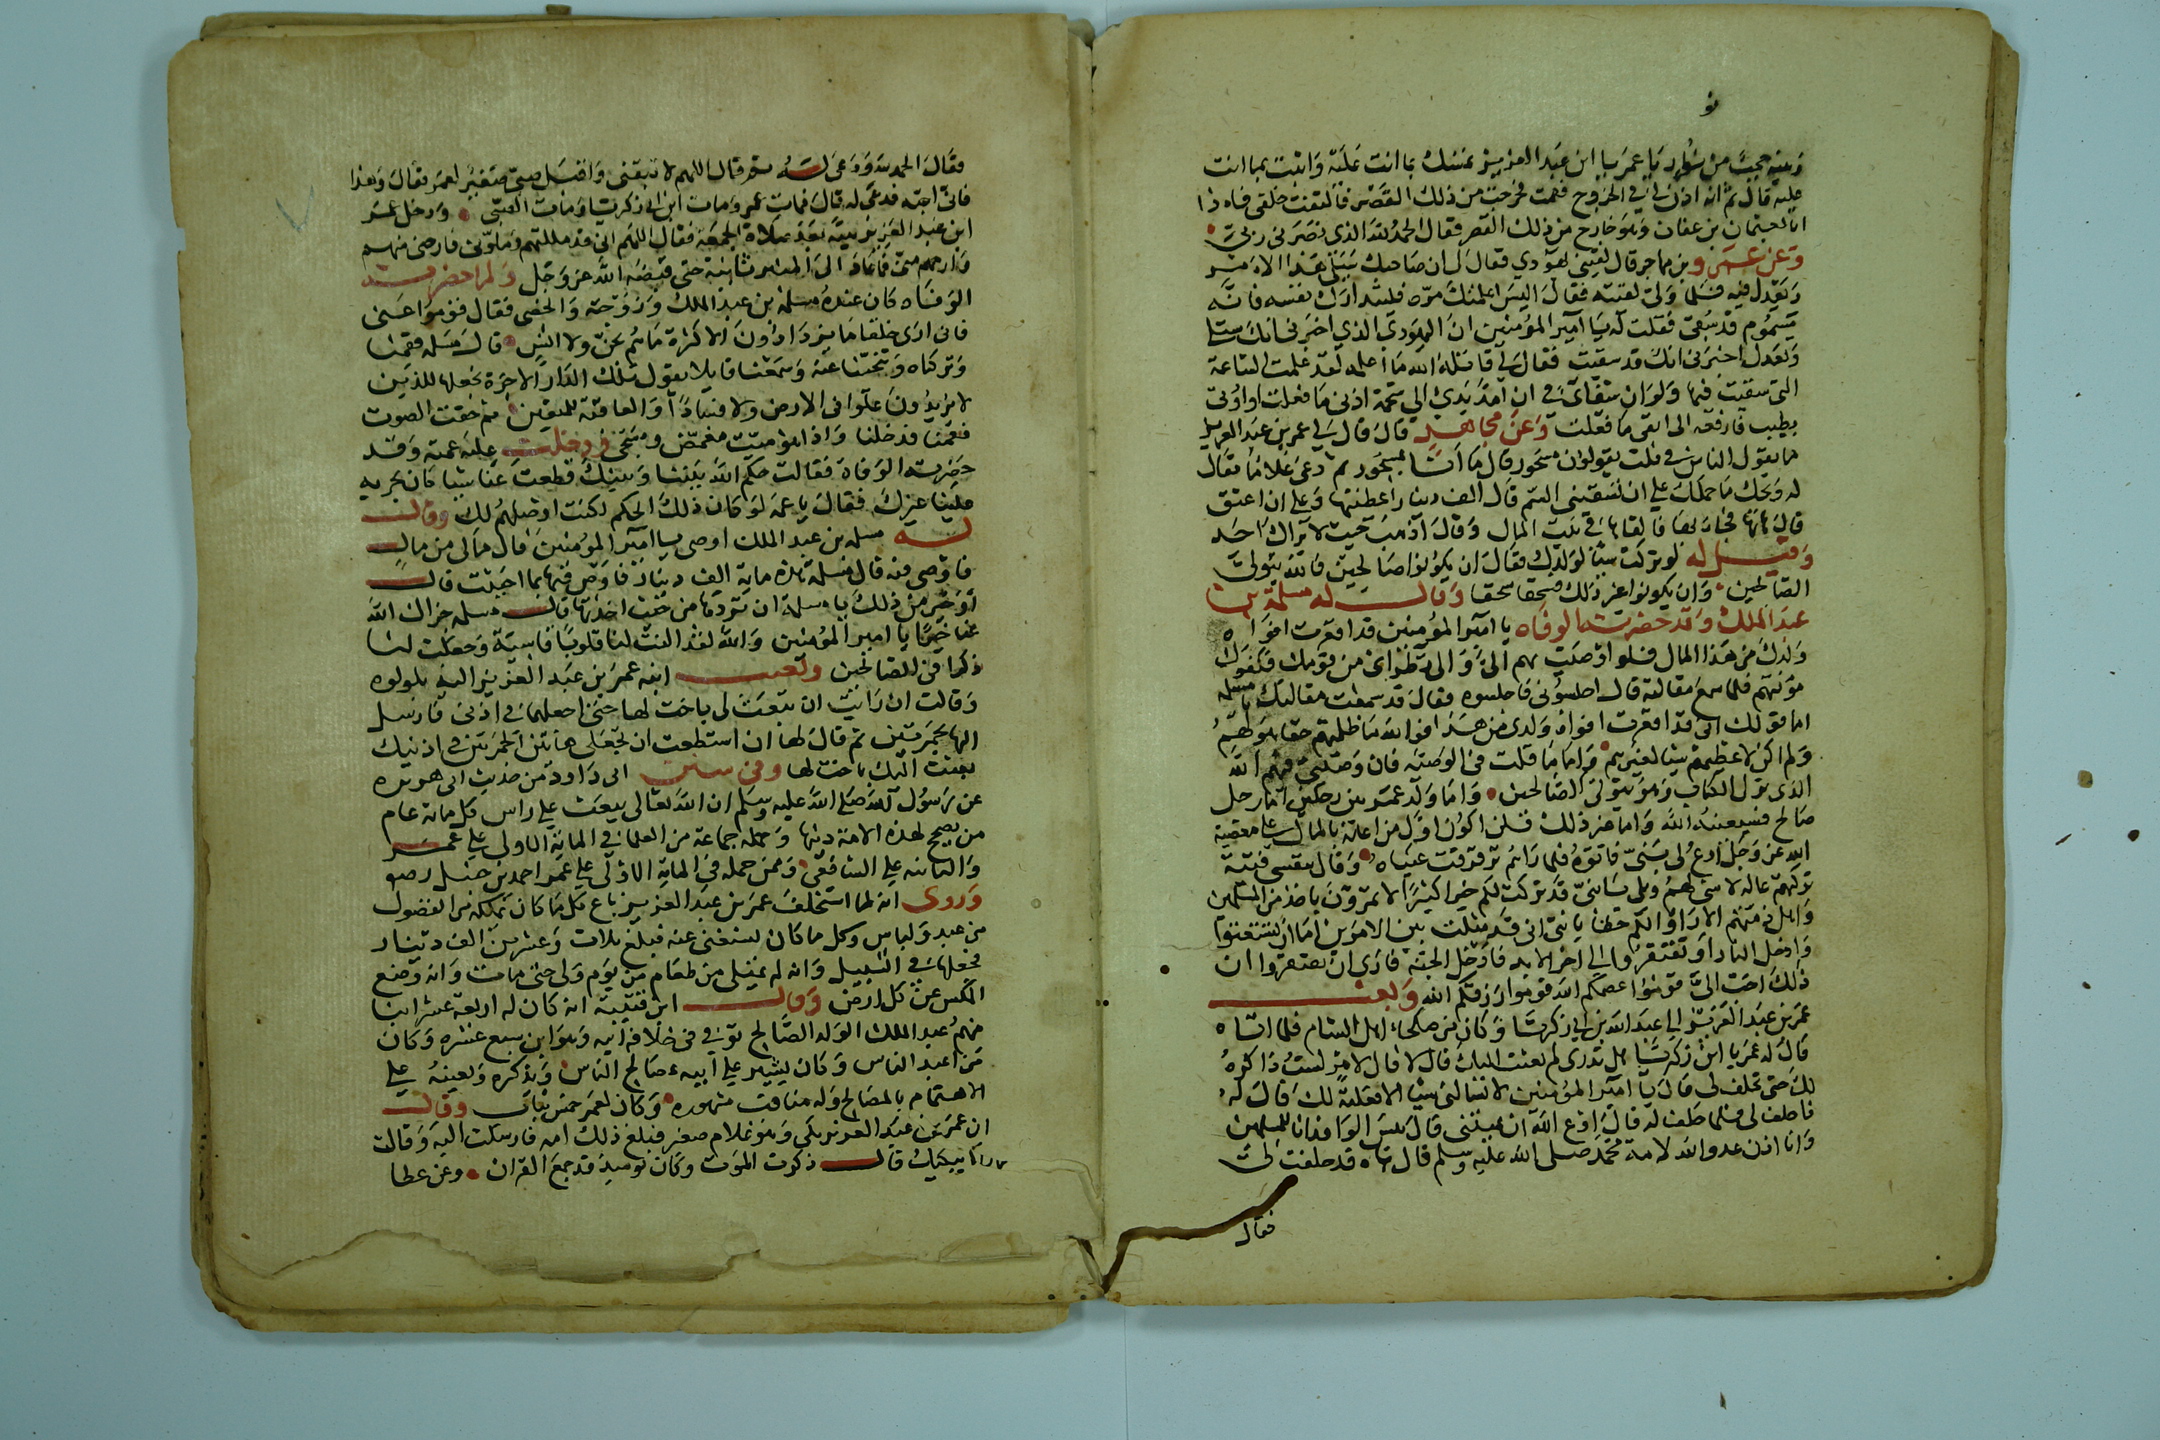 عليه قال ثم انه اذن لي في الخروج فقمت فخرجت من ذلك القصر فالتفت خلفي فاذا
انا بعثمان بن عفان وهو خارج من ذلك القصر فقال الحمد لله الذي نصرني ربي
وعن عمرو بن مهاجر قال لقيني يهودي فقال لي ان صاحبك سيلي هذا الامر
ويعدل فيه فلما ولي لقيته فقال اليس اعلمتك مره فليتدارك نفسه فانه
مسموم قد سقي فقلت له يا امير المؤمنين ان اليهودي الذي اخبرني انك ستلي
وتعدل اخبرني انك قد سقيت فقال لي قاتله الله ما اعلمه لقد علمت الساعة
التي سقيت فيها ولو ان شفائي في ان امد يدي الى شحمة اذني ما فعلت او اوتى
بطيب فارفعه الى انفي ما فعلت وعن مجاهد قال قال لي عمر بن عبد العزيز
ما يقول الناس في قلت يقولون مسحور قال ما انا بمسحور ثم دعى غلاما فقال
له ويحك ما حملك على ان تسقيني السم قال الف دينار اعطيتها وعلى ان اعتق
قال هاتها فجاء بها فالقاها في بيت المال وقال اذهب حيث لا يراك احد
وقيل له لو تركت شيئا لولدك فقال ان يكونوا صالحين فالله يتولى
الصالحين وان يكونوا غير ذلك فسحقا سحقا وقال له مسلمة بن
عبد الملك وقد حضرته الوفاه يا امير المؤمنين قد افغرت افواه
ولدك من هذا المال فلو اوصيت بهم الي والى نظرائي من قومك فكفوك
مؤنتهم فلما سمع مقالته قال اجلسوني فاجلسوه فقال قد سمعت مقالتك يا مسلمه
اما قولك اني قد افغرت افواه ولدي من هذا فوالله ما ظلمتهم حقا هو لهم
ولم اكن لاعطيهم شيئا لغيرهم واما ما قلت في الوصيه فان وصيي فيهم الله
الذي نزل الكتاب وهو يتولى الصالحين واما ولد عمر بين رجلين اما رجل
صالح فسيعينه الله واما غير ذلك فلن اكون اول من اعانه بالمال على معصية
الله عز وجل ادع لي بني فاتوه فلما راهم ترقرقت عيناه وقال بنفسي فتية
تركتهم عاله لا شيء لهم وبلى يا بني قد تركت لكم خيرا كثيرا لا تمرون باحد من المسلمين
واهل ذمتهم الا راوا لكم حقا يا بني اني قد مثلت بين الامرين اما ان تستغنوا
وادخل النار او تفتقروا الى اخر الابد فادخل الجنه فارى ان تفتقروا ان
ذلك احب الي قوموا عصمكم الله قوموا رزقكم الله وبعث
عمر بن عبد العزيز الى عبد الله بن ابي زكريا وكان من صلحاء اهل الشام فلما اتاه
قال له عمر يا ابن زكريا هل تدري لم بعثت اليك قال لا قال لامر لست ذاكره
لك حتى تحلف لي قال يا امير المؤمنين لا تسالني شيئا الا فعلته لك قال له
فاحلف لي فلما حلف له قال ادع الله ان يميتني قال بئس الوافد انا للمسلمين
وانا اذن عدو الله لامة محمد صلى الله عليه وسلم قال هاه قد حلفت لي
فقال
فقال الحمد لله ودعى له ثم قال اللهم لا تبقني واقبل صبي صغير لعمر فقال وهذا
فاني احبه فدعى له قال فمات عمر ومات ابن ابي زكريا ومات الصبي ودخل عمر
ابن عبد العزيز بيته بعد صلاة الجمعة فقال اللهم اني قد مللتهم وملوني فارحني منهم
وارحهم مني فما عاد الى المنبر ثانية حتى قبضه الله عز وجل ولما حضرته
الوفاه كان عنده مسلمة بن عبد الملك وزوجته والخصي فقال قوموا عني
فاني ارى خلقا ما يزدادون الا كثرة ما هم بجن ولا انس قال مسلمه فقمنا
وتركناه وتنحينا عنه وسمعنا قايلا يقول تلك الدار الاخرة نجعلها للذين
لا يريدون علوا في الارض ولا فسادا والعاقبة للمتقين ثم خفت الصوت
فقمنا فدخلنا واذا هو ميت مغمض ومسجى ودخلت عليه عمته وقد
حضرته الوفاة فقالت حكم الله بيننا وبينك قطعت عنا شيئا كان يجريه
علينا غيرك فقال يا عمه لو كان ذلك الحكم لكنت اوصلهم لك وقال
له مسلمه بن عبد الملك اوصي يا امير المؤمنين قال مالي من مال
فاوصي فيه قال مسلمة هذه ماية الف دينار فاوص فيها بما احببت قال
او خير من ذلك يا مسلمة ان تردها من حيث اخذتها قال مسلمه جزاك الله
عنا خيرا يا امير المؤمنين والله لقد النت لنا قلوبا قاسية وجعلت لنا
ذكرا في الصالحين وبعثت ابنه عمر بن عبد العزيز اليه بلولوه
وقالت ان رايت ان تبعث لي باخت لها حتى اجعلها في اذني فارسل
اليها بجمرتين ثم قال لها ان استطعت ان تجعلي هاتين الجمرتين في اذنيك
بعثت اليك باخت لها وفي سنن ابي داود من حديث ابي هريره
عن رسول الله صلى الله عليه وسلم ان الله تعالى يبعث على راس كل مائة عام
من يصحح لهذه الامة دينها وحمله جماعة من العلماء في المائة الاولى على عمر
والثانيه على الشافعي وممن حمله في الماية الاولى على عمر احمد بن حنبل
وروى انه لما استخلف عمر بن عبد العزيز باع كل ما كان يملكه من الفضول
من عبد ولباس وكل ما كان يستغنى عنه فبلغ ثلاث وعشرين الف دينار
فجعلها في السبيل وانه لم يمتلي من طعام من يوم ولى حتى مات وانه وضع
المكس عن كل ارض وقال ابن قتيبة انه كان له اربعة عشر ابنا
منهم عبد الملك الولد الصالح توفي في خلافة ابيه وهو ابن سبع عشره وكان
من اعبد الناس وكان يشير على ابيه بصالح الناس ويذكره ويعينه على
الاهتمام بالمصالح وله مناقب مشهوره وكان لعمر خمس بنات وقال
ان عمر بن عبد العزيز بكى وهو غلام صغير فبلغ ذلك امه فارسلت اليه وقالت
ما يبكيك قال ذكرت الموت وكان يوميذ قد جمع القران وعن عطا